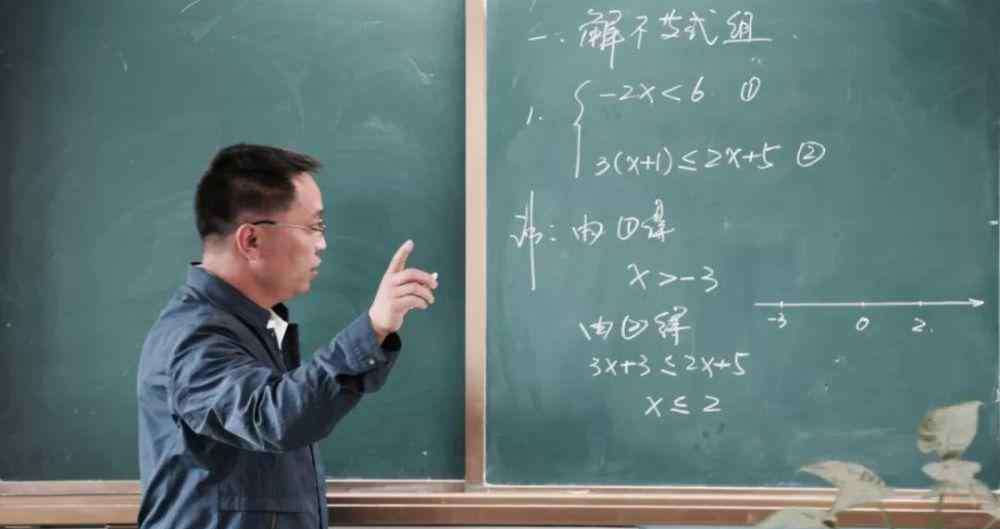 一. 解不等式组
1. { -2x<6 ①
3(x+1)≤2x+5 ②
解: 由①得
x>-3
-3 0 2
由②得
3x+3≤2x+5
x≤2